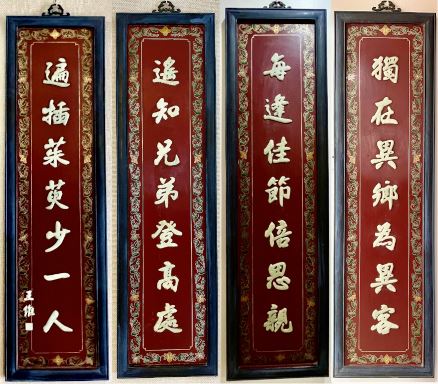 獨在異鄉為異客
每逢佳節倍思親
遙知兄弟登高處
遍插茱萸少一人
王維